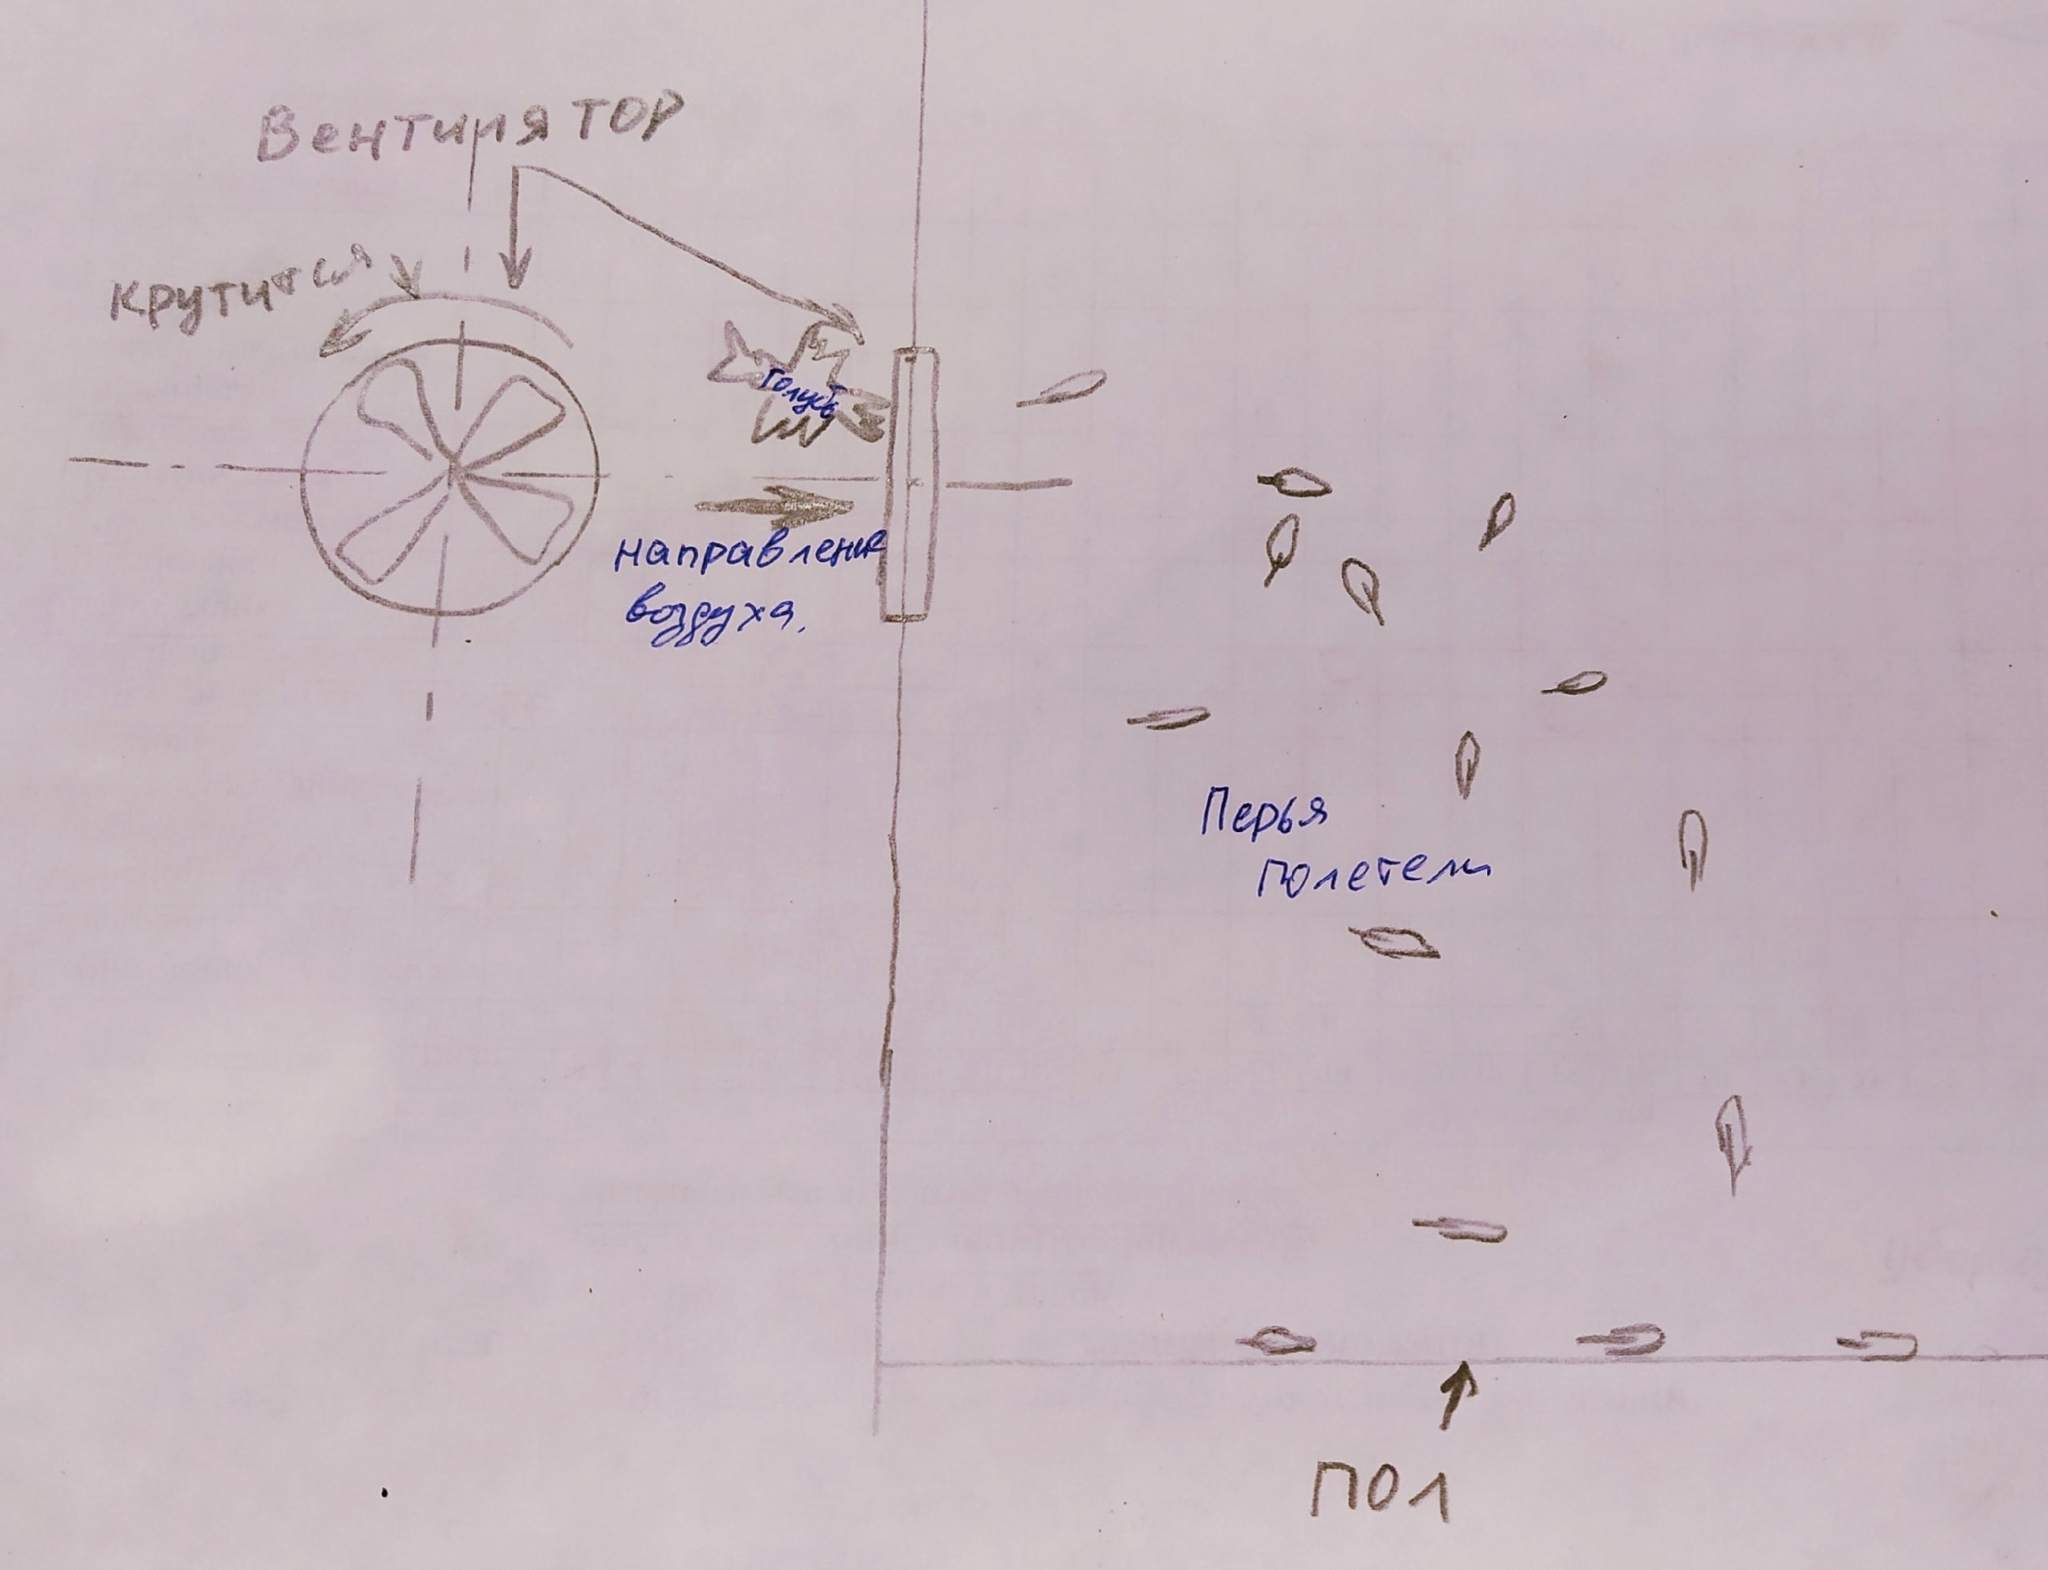 Вентилятор
крутится
голубь
направление
воздуха.
Перья
полетели
пол